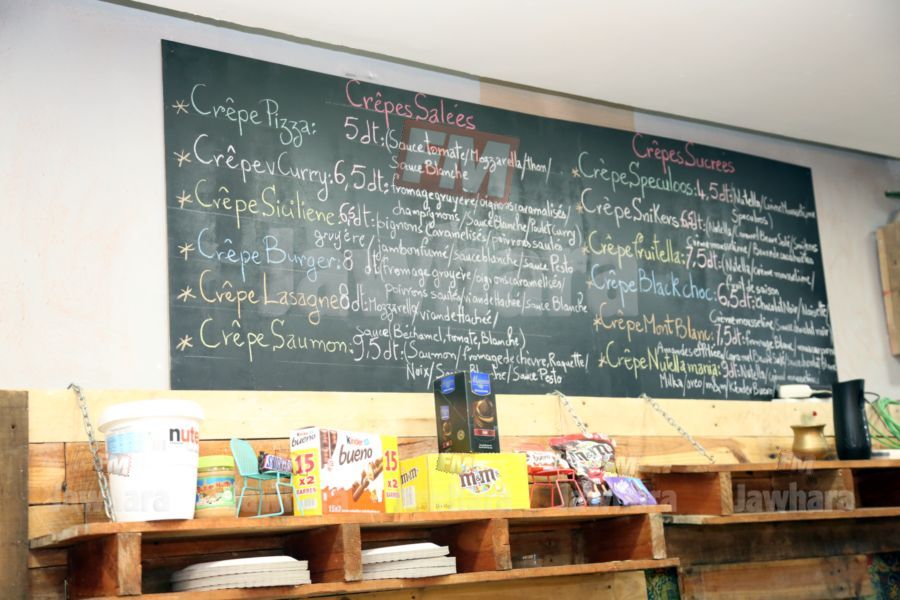 Crêpes Salées
* Crêpe Pizza: 5dt: (Sauce tomate/Mozzarella/thon/
Sauce Blanche
* Crêpe Curry: 6,5dt: fromage gruyère/oignons caramélisés/
champignons/Sauce Blanche/Poulet curry)
* Crêpe Sicilienne: 6,5dt: pignons/caramélisés/poivrons sautés
gruyère/jambon fumé/sauce blanche/sauce Pesto
* Crêpe Burger: 8 dt: (fromage gruyère/oignons caramélisés/
Poivrons sautés/viande Hachée/Sauce Blanche
* Crêpe Lasagne 8dt: Mozzarella/viande Hachée/
sauce (Béchamel, tomate, Blanche)
* Crêpe Saumon: 9,5dt: (Saumon/fromage de chèvre, Raquette/
Noix/Sauce Blanche/Sauce Pesto
Crêpes Sucrées
* Crêpe Speculoos: 4,5dt: (Nutella/Crème Mousseline/
Speculoos)
* Crêpe SniKers 6,5dt: (Nutella/Caramel Beurre Salé/Snickers
Crème mousseline/Beurre de cacahuètes
* Crêpe fruitella: 7,5dt: (Nutella/crème mousseline/
fruit de saison
* Crêpe Black choc: 6,5dt: Chocolat Noir/Noisette
Crème mousseline/Sauce chocolat noir
* Crêpe Mont Blanc: 7,5dt: fromage Blanc/
Amandes effilées/Caramel Beurre Salé/
* Crêpe Nutella mania: 9dt: Nutella/
Milka/oreo/m&m/Kinder Bueno
FM
Jawhara
nute
SNICKERS
15
x2
BARRES
bueno
Kinder
bueno
15
x2
m&m's
m&m's
FM
Jawhara
FM
Jawhara
FM
Jawhara